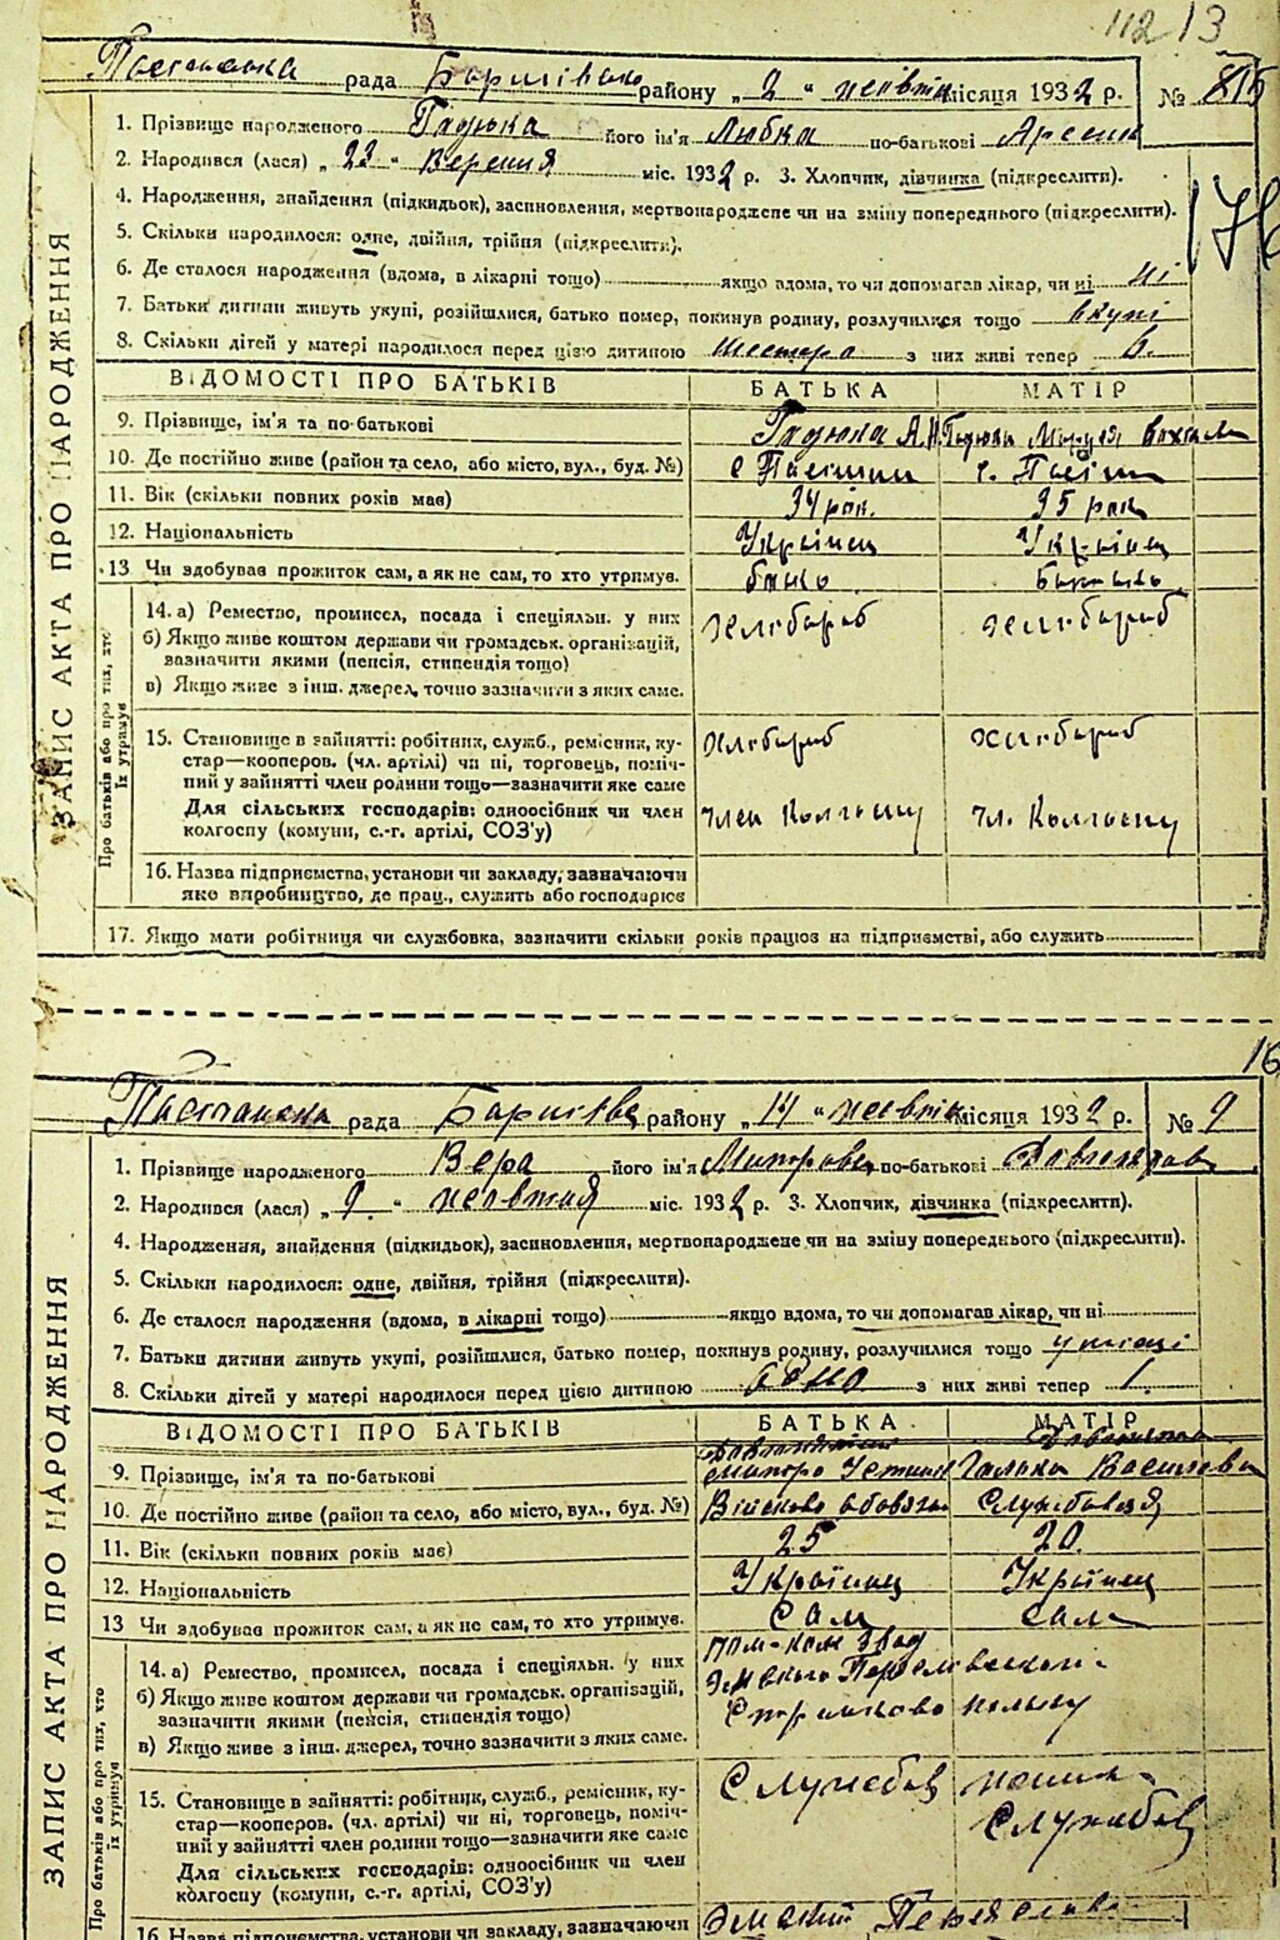 112 13
рада Баришівсько району „ 2 “ жовтня місяця 1932 р. №
1. Прізвище народженого Гадюка його ім'я Любка по-батькові Арсени
2. Народився (лася) „ 23 “ Вересня міс. 1932 р. 3. Хлопчик, дівчинка (підкреслити).
4. Народження, знайдення (підкидьок), засиновлення, мертвонароджене чи на зміну попереднього (підкреслити).
5. Скільки народилося: одне, двійня, трійня (підкреслити).
6. Де сталося народження (вдома, в лікарні тощо) якщо вдома, то чи допомагав лікар, чи ні ні
7. Батьки дитини живуть укупі, розійшлися, батько помер, покинув родину, розлучилися тощо вкупі
8. Скільки дітей у матері народилося перед цією дитиною шестеро з них живі тепер 6.
ВІДОМОСТІ ПРО БАТЬКІВ БАТЬКА МАТІР
9. Прізвище, ім'я та по-батькові Гадюка А.Н. Гадюка
10. Де постійно живе (район та село, або місто, вул., буд. №)
11. Вік (скільки повних років має) 34 рок. 35 рок
12. Національність Українец Українец
13 Чи здобуває прожиток сам, а як не сам, то хто утримує.
14. а) Ремество, промисел, посада і спеціяльн. у них Хлебороб Хлебороб
б) Якщо живе коштом держави чи громадськ. організацій,
зазначити якими (пенсія, стипендія тощо)
в) Якщо живе з інш. джерел, точно зазначити з яких саме.
15. Становище в зайнятті: робітник, служб., ремісник, ку- Хлебороб Хлебороб
стар—кооперов. (чл. артілі) чи ні, торговець, поміч-
ний у зайнятті член родини тощо—зазначити яке саме
Для сільських господарів: одноосібник чи член Член Колгоспу Чл. Колгоспу
колгоспу (комуни, с.-г. артілі, СОЗ'у)
16. Назва підприємства, установи чи закладу, зазначаючи
яке виробництво, де прац., служить або господарює
17. Якщо мати робітниця чи службовка, зазначити скільки років працює на підприємстві, або служить
ЗАПИС АКТА ПРО НАРОДЖЕННЯ
Про батьків або про тих, хто
їх утримує
16
рада району „ 14 “ жовтня місяця 1932 р. № 9
1. Прізвище народженого Вера його ім'я по-батькові
2. Народився (лася) „ 9. “ жовтня міс. 1932 р. 3. Хлопчик, дівчинка (підкреслити).
4. Народження, знайдення (підкидьок), засиновлення, мертвонароджене чи на зміну попереднього (підкреслити).
5. Скільки народилося: одне, двійня, трійня (підкреслити).
6. Де сталося народження (вдома, в лікарні тощо) якщо вдома, то чи допомагав лікар, чи ні
7. Батьки дитини живуть укупі, розійшлися, батько помер, покинув родину, розлучилися тощо
8. Скільки дітей у матері народилося перед цією дитиною одно з них живі тепер 1.
ВІДОМОСТІ ПРО БАТЬКІВ БАТЬКА МАТІР
9. Прізвище, ім'я та по-батькові
10. Де постійно живе (район та село, або місто, вул., буд. №)
11. Вік (скільки повних років має) 25 20.
12. Національність Українец Українец
13 Чи здобуває прожиток сам, а як не сам, то хто утримує. Сам сам
14. а) Ремество, промисел, посада і спеціяльн. у них
б) Якщо живе коштом держави чи громадськ. організацій,
зазначити якими (пенсія, стипендія тощо)
в) Якщо живе з інш. джерел, точно зазначити з яких саме.
15. Становище в зайнятті: робітник, служб., ремісник, ку- Службов
стар—кооперов. (чл. артілі) чи ні, торговець, поміч- Службов
ний у зайнятті член родини тощо—зазначити яке саме
Для сільських господарів: одноосібник чи член
колгоспу (комуни, с.-г. артілі, СОЗ'у)
16. Назва підприємства, установи чи закладу, зазначаючи
ЗАПИС АКТА ПРО НАРОДЖЕННЯ
Про батьків або про тих, хто
їх утримує